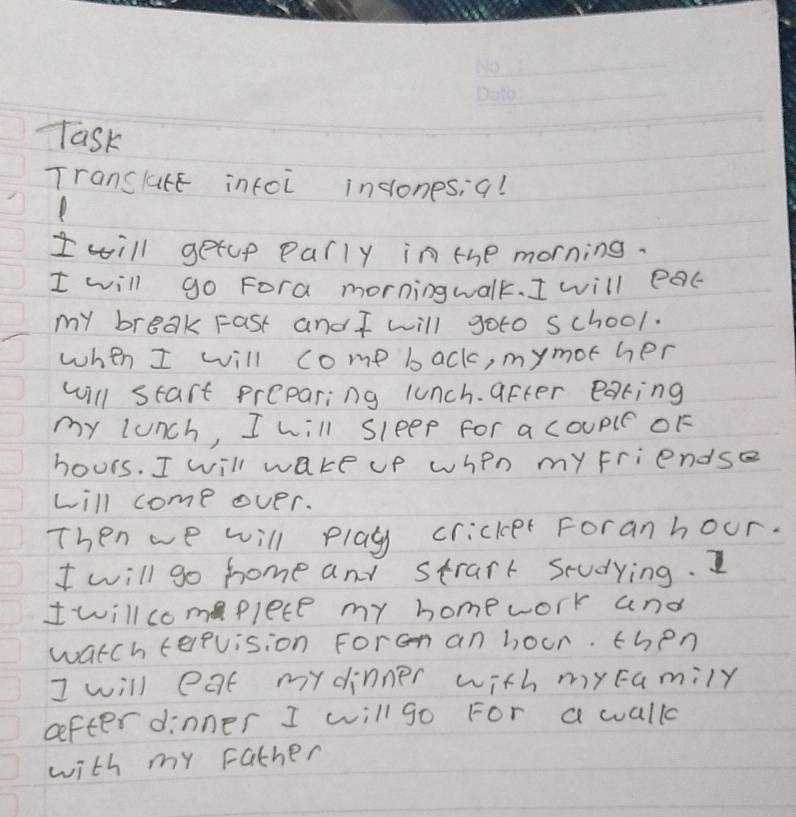 No :
Date :
Task
Translate intoi indonesia!
I will getup early in the morning.
I will go For a morning walk. I will eat
my break Fast and I will goto school.
when I will come back, my mother
will start preparing lunch. after eating
my lunch, I will sleep For a couple OF
hours. I will wake up when my Friends
will come over.
Then we will Play cricket For an hour.
I will go home and strart Studying. I
I will complete my homework and
watch television For an hour. then
I will eat my dinner with my Family
after dinner I will go For a walk
with my Father